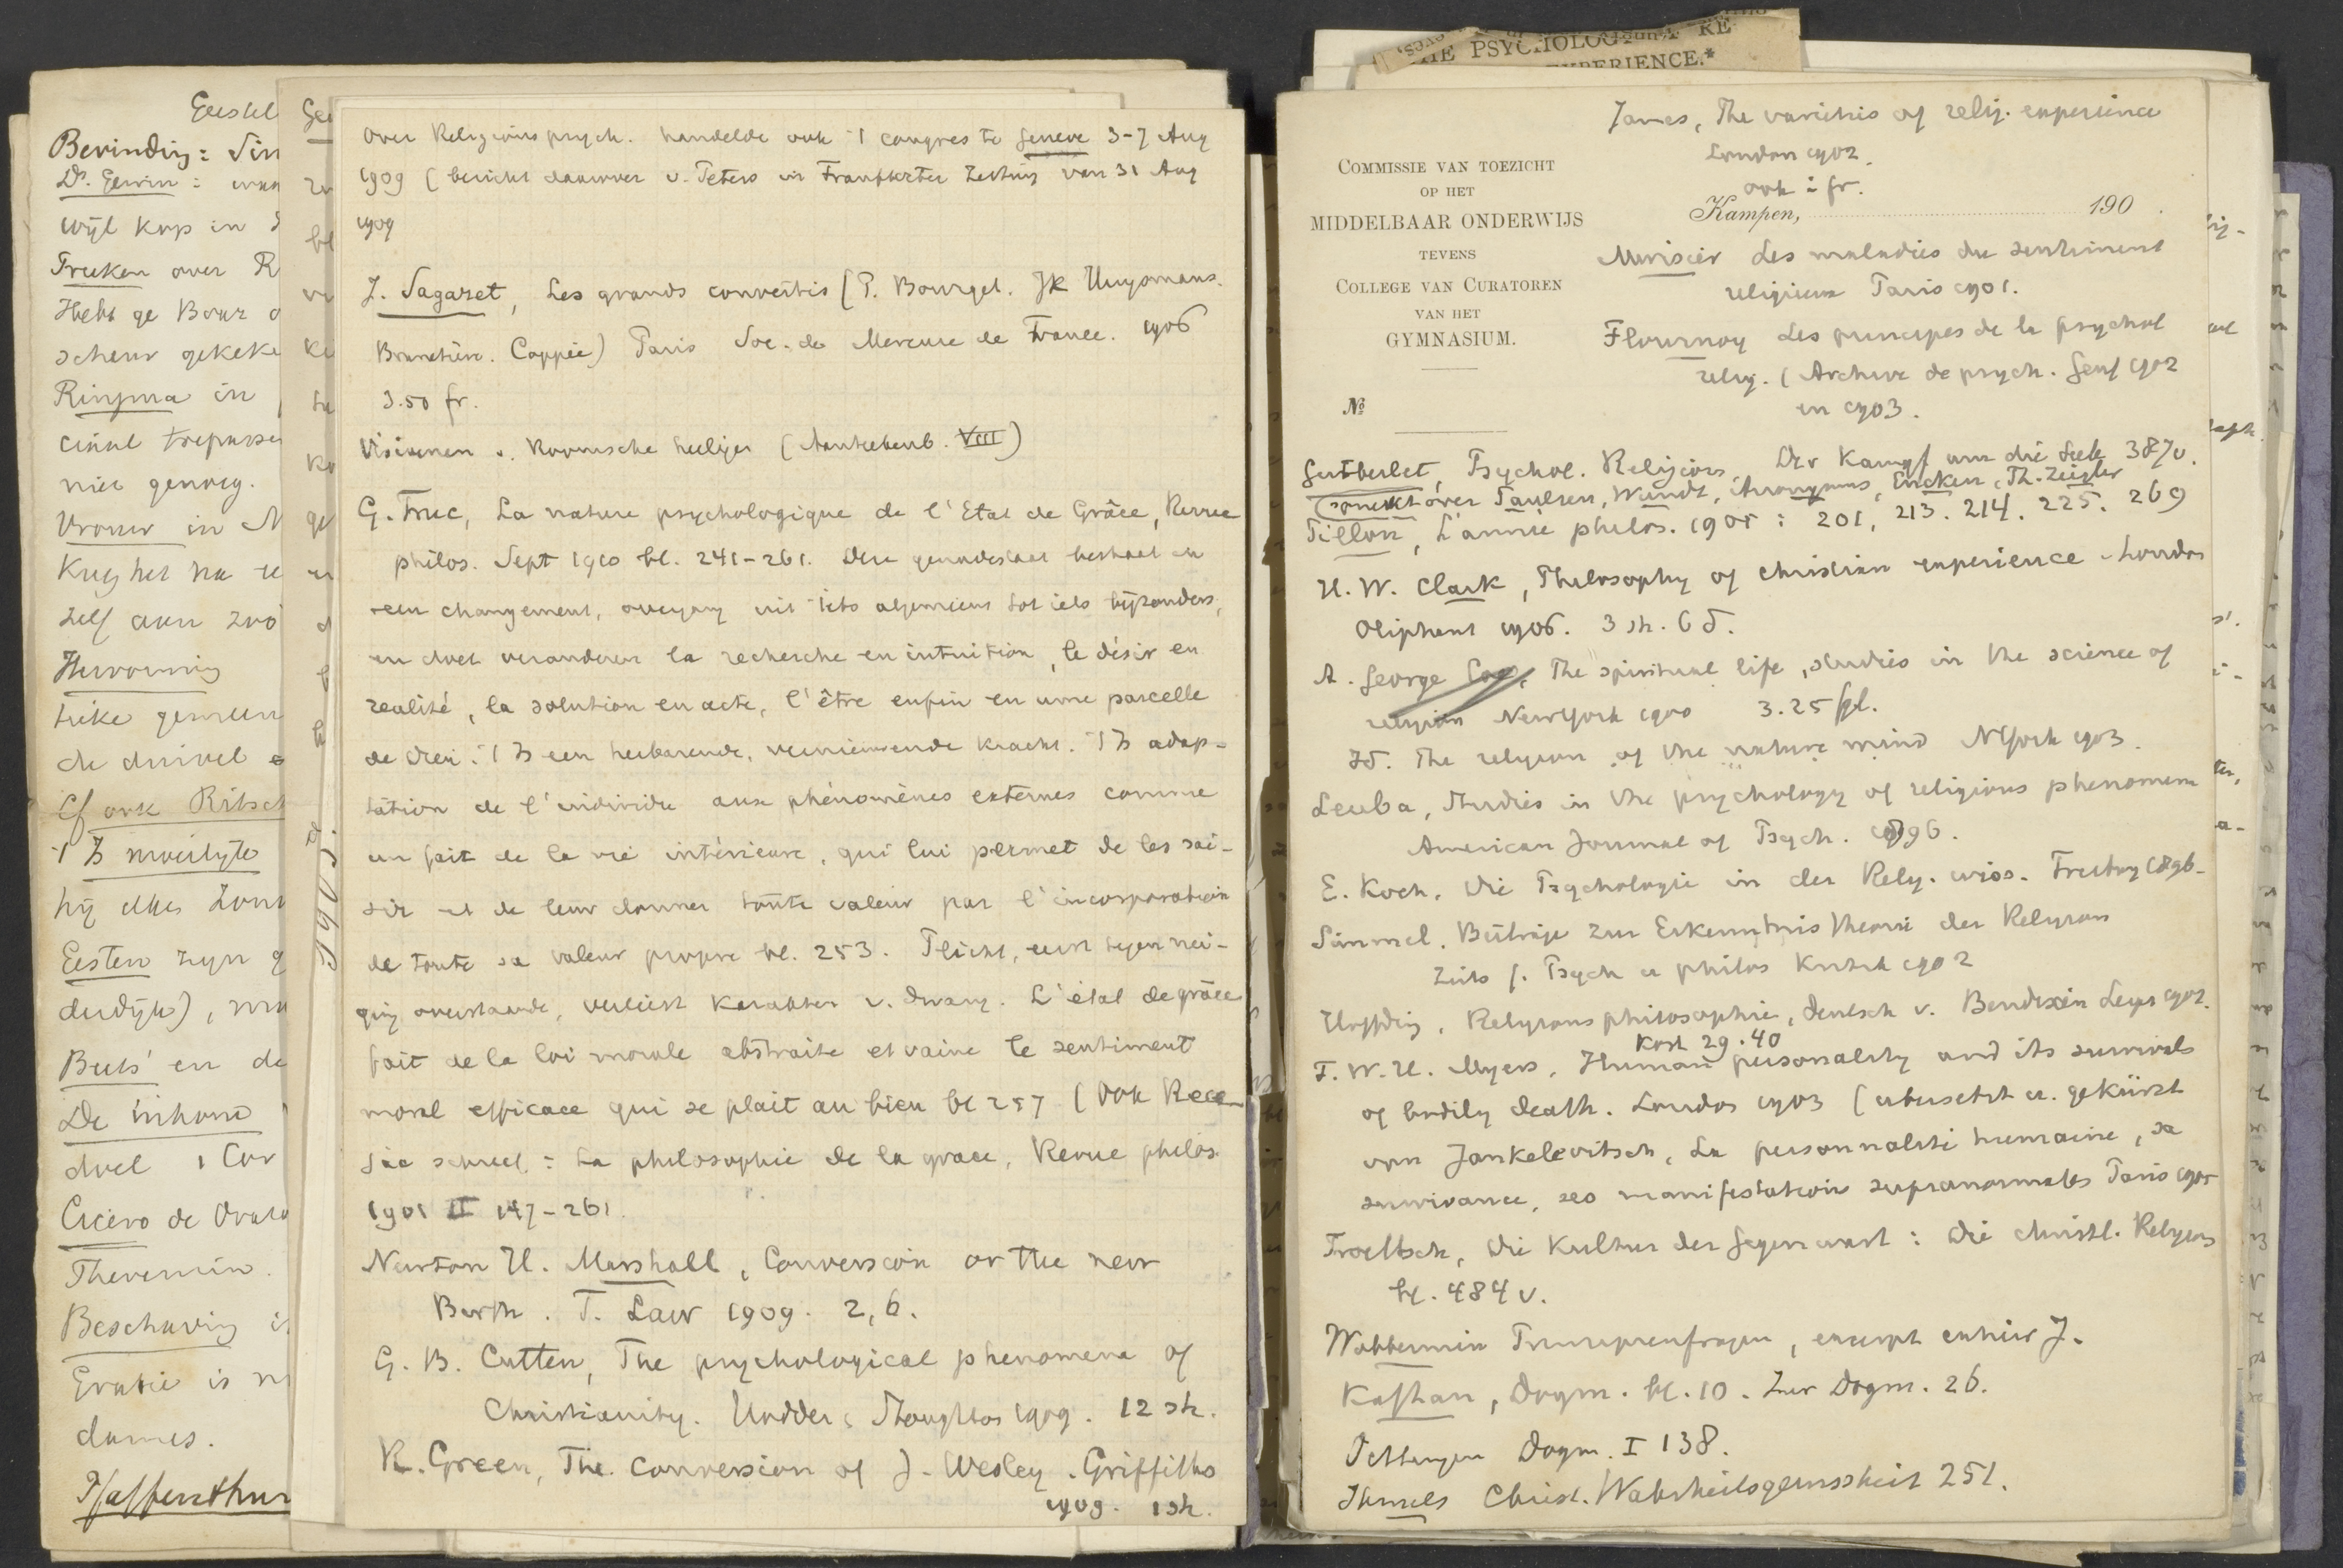 Geestel
Bevinding: Sin
Dr. Gerwin:
wijl kop in
Freeken over R
Hebt ge Baur
scheur gekeke
Ringma in
niet genoeg.
Vrouw in N
Krijg het na
zelf aan zoo
Hervorming
de duivel
Cf ook Ritsch
't Is moeilijk
hij alles
Eesten zijn
derdijk),
Buts' en de
De inhoud
doel 1 Cor
Cicero de Orato
Theremin.
Beschaving is
Gratie is
dames.
Pfaffenthur
1905.
Over Religionspsych. handelde ook 't congres te Genève 3-7 Aug
1909 (bericht daarover v. Peters in Frankfurter Zeitung van 31 Aug
1909
J. Sageret, Les grands convertis (P. Bourget. JK Huysmans.
Brunetière. Coppée) Paris Soc. du Mercure de France. 1906
3.50 fr.
Visioenen v. Roomsche heiligen (Aanteekenb. VIII)
G. Truc, La nature psychologique de l'Etat de Grâce, Revue
philos. Sept 1910 bl. 241-261. Deze genadestaat bestaat in
een changement, overgang uit iets algemeens tot iets bijzonders,
en doet veranderen la recherche en intuition, le désir en
realité, la solution en acte, l'être enfin en une parcelle
de Dieu. 't Is een herbarende, vernieuwende kracht. 't Is adap-
tation de l'individu aux phénomènes externes comme
un fait de la vie intérieure, qui lui permet de les sai-
sir et de leur donner toute valeur par l'incorporation
de toute sa valeur propre bl. 253. Plicht, eerst tegen nei-
ging overstaande, verliest karakter v. dwang. L'état de grâce
fait de la loi morale abstraite et vaine le sentiment
moral efficace qui se plait au bien bl 257 (Ook Rece-
jac schreef: La philosophie de la grace, Revue philos.
1901 II 147-261.
Newton H. Marshall, Conversion or the new
Birth. T. Law 1909. 2,6.
G. B. Cutten, The psychological phenomena of
Christianity. Hodder & Stoughton 1909. 12 sh.
R. Green, The conversion of J. Wesley. Griffiths
1909. 1 sh.
THE PSYCHOLOGY RE
EXPERIENCE.*
James, The varieties of relig. experience
London 1902.
ook i fr.
COMMISSIE VAN TOEZICHT
OP HET
MIDDELBAAR ONDERWIJS
TEVENS
COLLEGE VAN CURATOREN
VAN HET
GYMNASIUM.
Nº
Kampen, 190 .
Murisier Les maladies du sentiment
religieux Paris 1901.
Flournoy Les principes de la psychol
relig. (Archive de psych. Genf 1902
en 1903.
Gutberlet, Psychol. Religion, Der Kampf um die Seele 387v.
spreekt over Paulsen, Wundt, Anonymus, Eucken, Th. Ziegler
Pillon, L'année philos. 1905: 201, 213. 214. 225. 269
H. W. Clark, Philosophy of christian experience London
Oliphant 1906. 3 sh. 6 d.
A. George Coe, The spiritual life, studies in the science of
religion NewYork 1900 3.25 fgl.
Id. The religion of the mature mind NYork 1903.
Leuba, Studies in the psychology of religious phenomena
American Journal of Psych. 1896.
E. Koch, Die Psychologie in der Relig. wiss. Freiburg 1896.
Simmel. Beiträge zur Erkenntnistheorie der Religion
Zeits f. Psych u philos Kritik 1902
Höffding, Religionsphilosophie, deutsch v. Bendixen Leipz 1902.
kost 29.40
F. W. H. Myers, Human personality and its survival
of bodily death. London 1903 (übersetzt u. gekürzt
von Jankelevitsch, La personnalité humaine, sa
survivance, ses manifestations supranormales Paris 1905
Troeltsch, Die Kultur der Gegenwart: Die christl. Religion
bl. 484 v.
Wobbermin, excerpt
Kaftan, Dogm. bl. 10. Zur Dogm. 26.
Oettingen Dogm. I 138.
Ihmels Christ. Wahrheitsgewissheit 251.